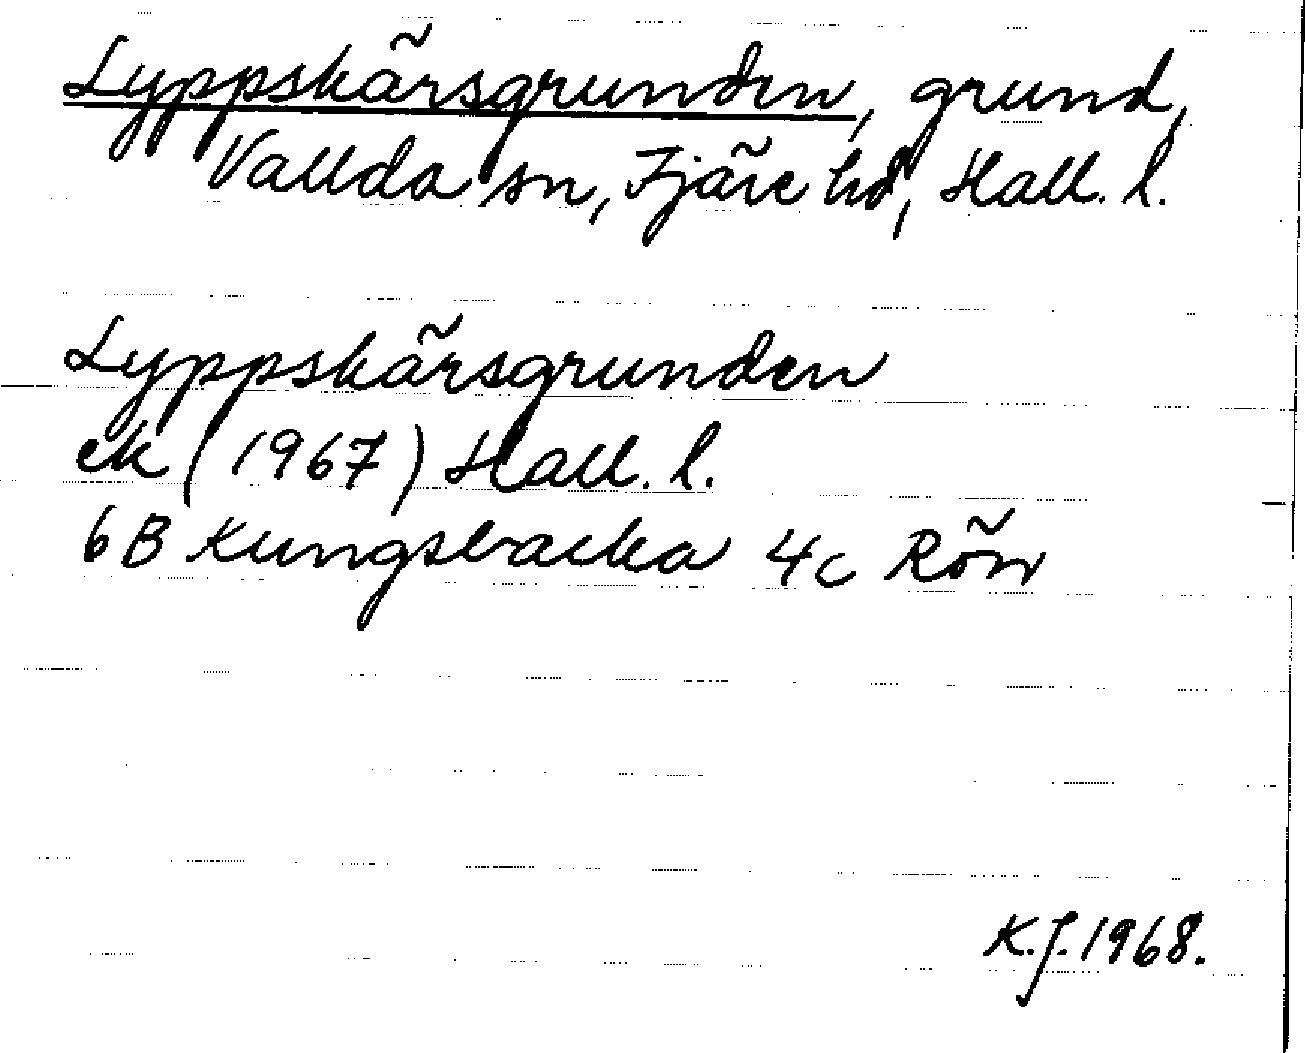 Lyppskärsgrunden, grund,
Vallda sn, Fjäre hd, Hall. l.
Lyppskärsgrunden
ek (1967) Hall. l.
6B Kungsbacka 4c Rörv
K.J. 1968.